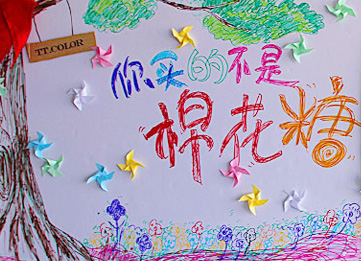 TT.COLOR
你买的不是
棉花糖